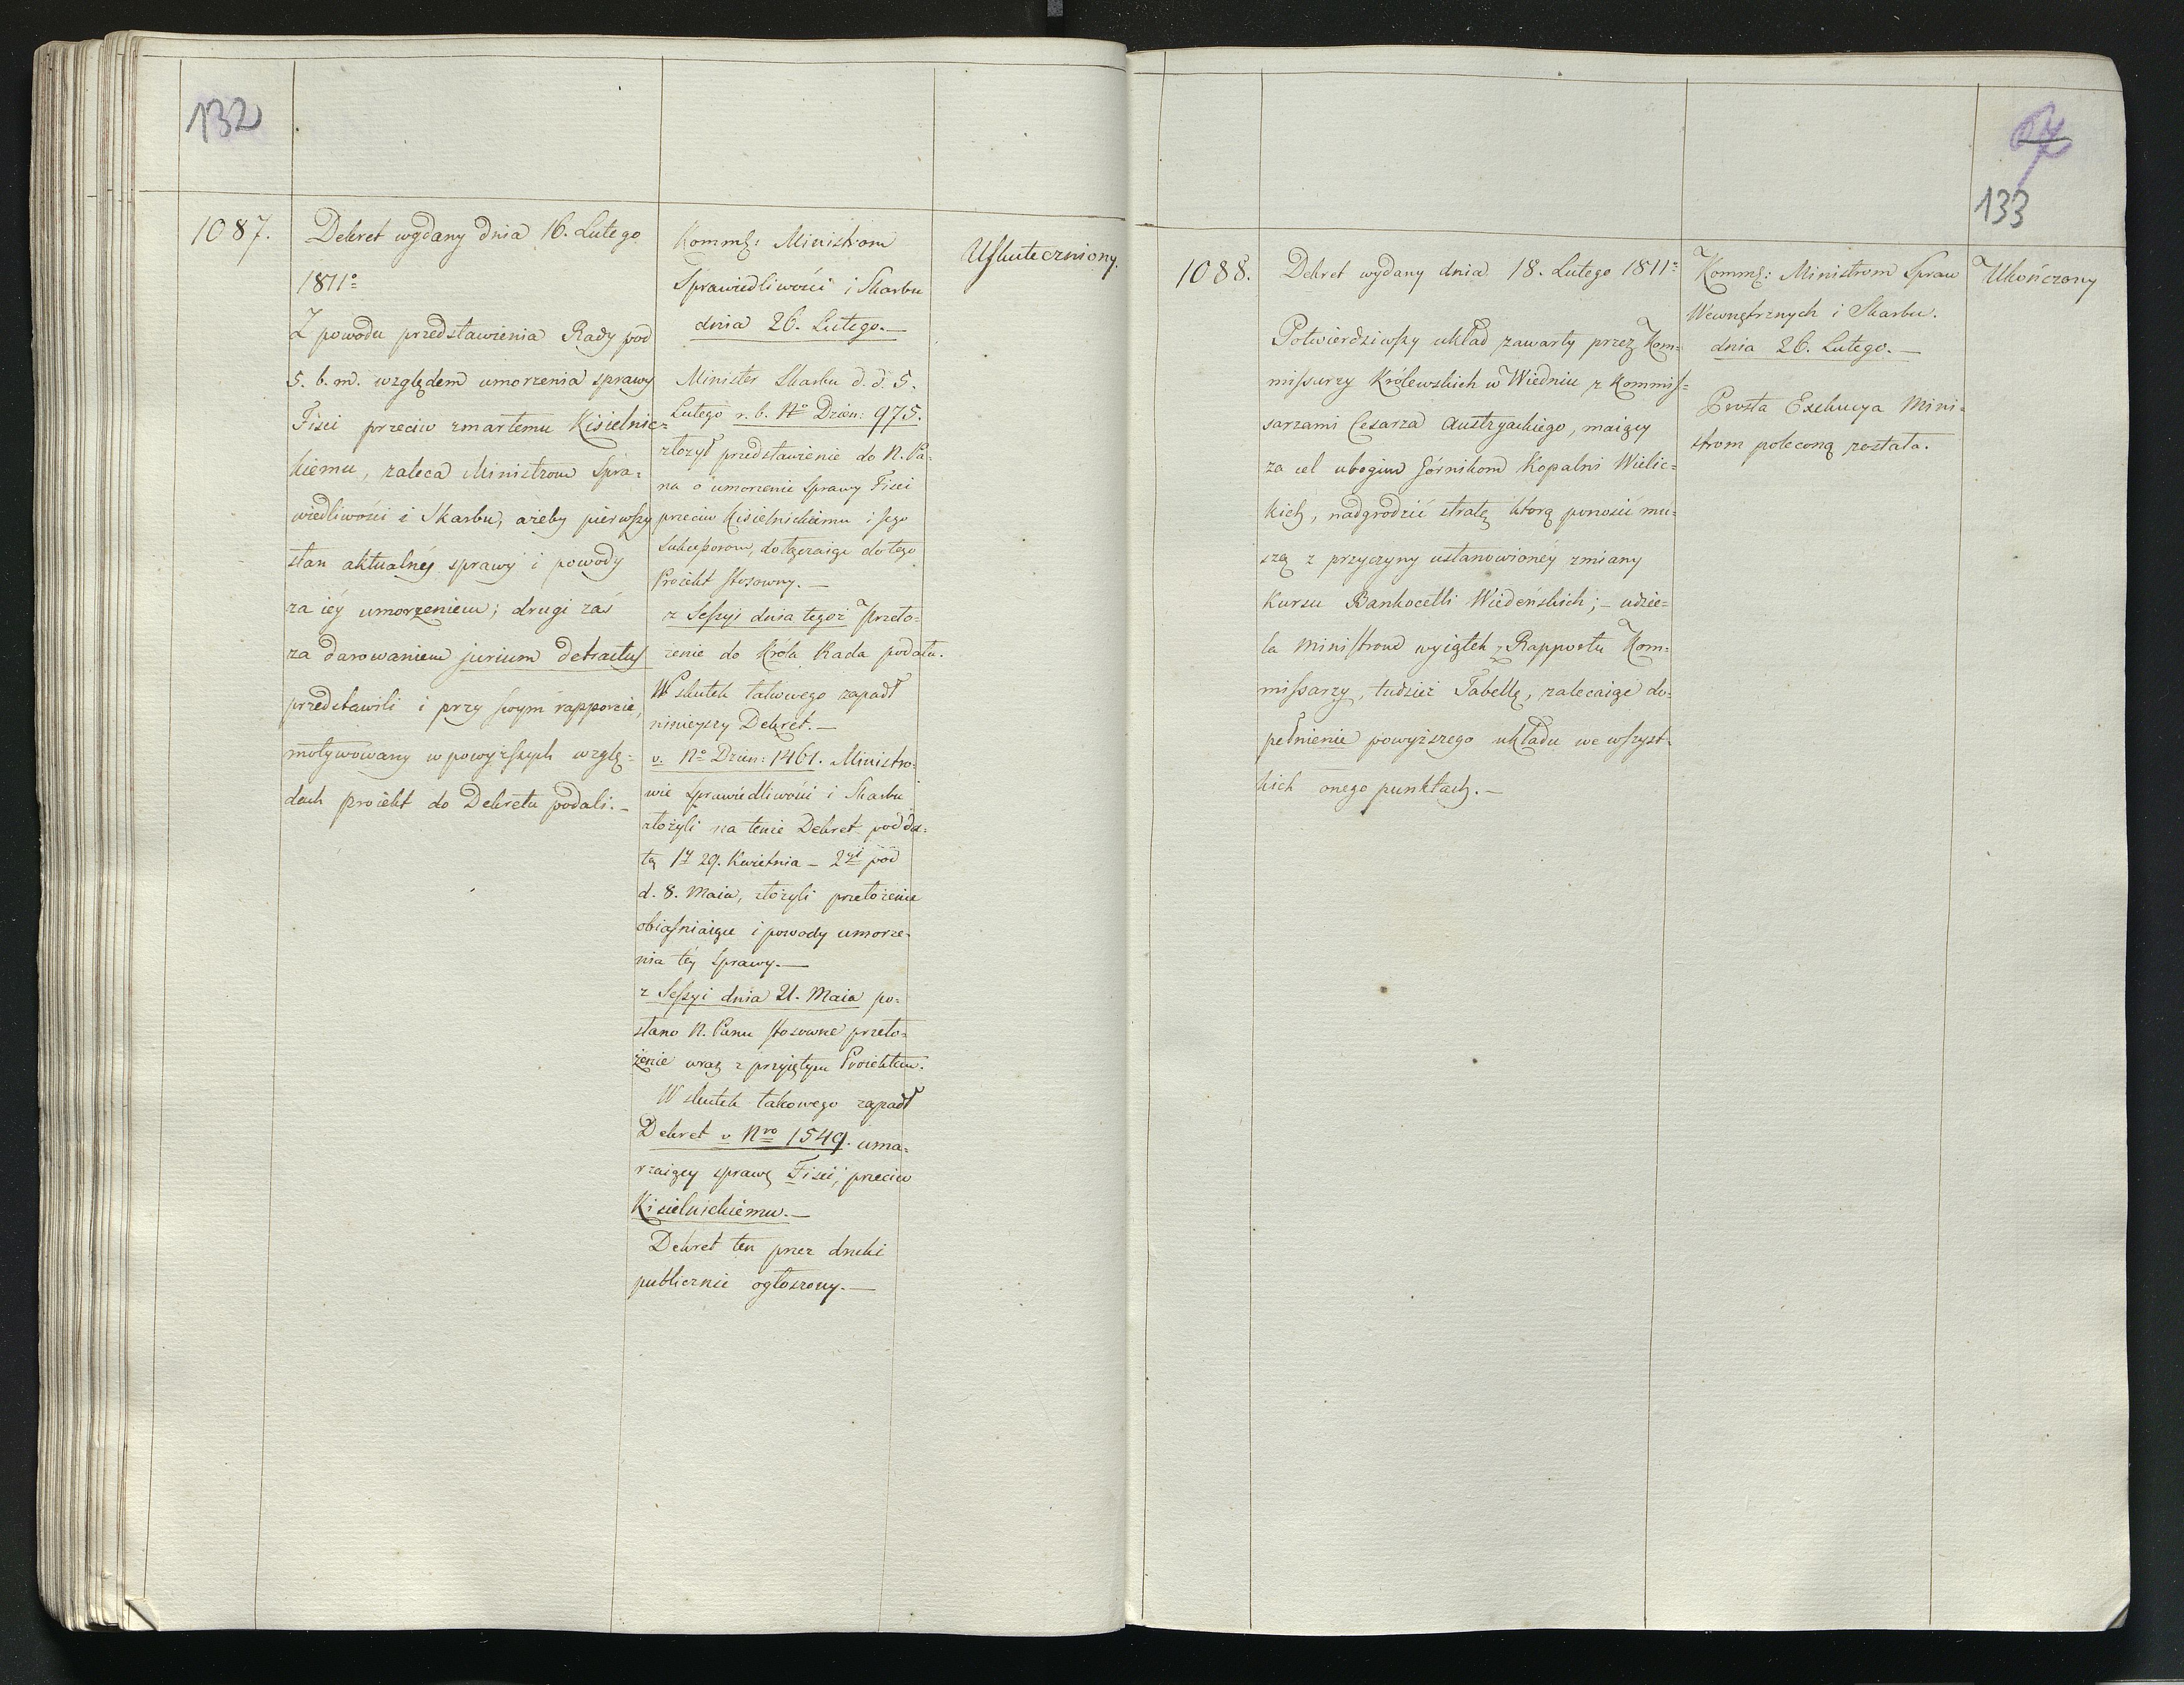 132
1087.
Dekret wydany dnia 16. Lutego
1811o
Z powodu przedstawienia Rady pod
5. b. m. względem umorzenia sprawy
Fisci przeciw zmartemu Kisielnic=
kiemu, zaleca Ministrom Spra=
wiedliwości i Skarbu, ażeby pierwszy
stan aktualnéj sprawy i powody
za iéy umorzeniem; drugi zaś
za darowaniem jurium detractus
przedstawili i przy swym rapporcie,
motywowany w powyższych wzglę=
dach proiekt do Dekretu podali.—
Kommk: Ministrom
Sprawiedliwości i Skarbu
dnia 26. Lutego.—
Minister Skarbu d. d. 5.
Lutego r. b. No Dzien: 975.
złożył przedstawienie do N. Pa=
na o umorzenie sprawy Fisci
przeciw Kisielnickiemu i jego
sukcessorom, dołączaiąc do tego
Proiekt stosowny.—
z Sessyi dnia tegoż przeło=
żenie do Króla Rada podała.
W skutek takowego zapadł
ninieyszy Dekret.—
v. No Dzien: 1461. Ministro=
wie Sprawiedliwości i Skarbu
złożyli na tenże Dekret pod da=
tą 1y 29. Kwietnia — 2gi pod
d. 8. Maia, złożyli przełożenie
obiaśniaiące i powody umorze=
nia téy sprawy.—
z Sessyi dnia 21. Maia po=
słano N. Panu stosowne przeło=
żenie wraz z przyiętym Proiektem.
W skutek takowego zapadł
Dekret v Nro 1549. uma=
rzaiący sprawę Fisci, przeciw
Kisielnickiemu.—
Dekret ten przez druki
publicznie ogłoszony.—
Uskuteczniony.
67
133
1088.
Dekret wydany dnia 18. Lutego 1811o
Potwierdziwszy układ zawarty przez Kom=
missarzy Królewskich w Wiedniu z Kommis=
sarzami Cesarza Austryackiego, maiący
za cel ubogim Górnikom Kopalni Wielic=
kich, nadgrodzić stratę którą ponosić mu=
szą z przyczyny ustanowionéy zmiany
Kursu Bankocetli Wiedeńskich;— udzie=
la Ministrom wyiątek z Rapportu Kom=
missarzy, tudzież Tabellę, zalecaiąc do=
pełnienie powyższego układu we wszyst=
kich onego punktach.—
Kommk: Ministrom Spraw
Wewnętrznych i Skarbu.
dnia 26. Lutego.—
Prosta Exekucya Mini=
strom poleconą została.
Ukończony